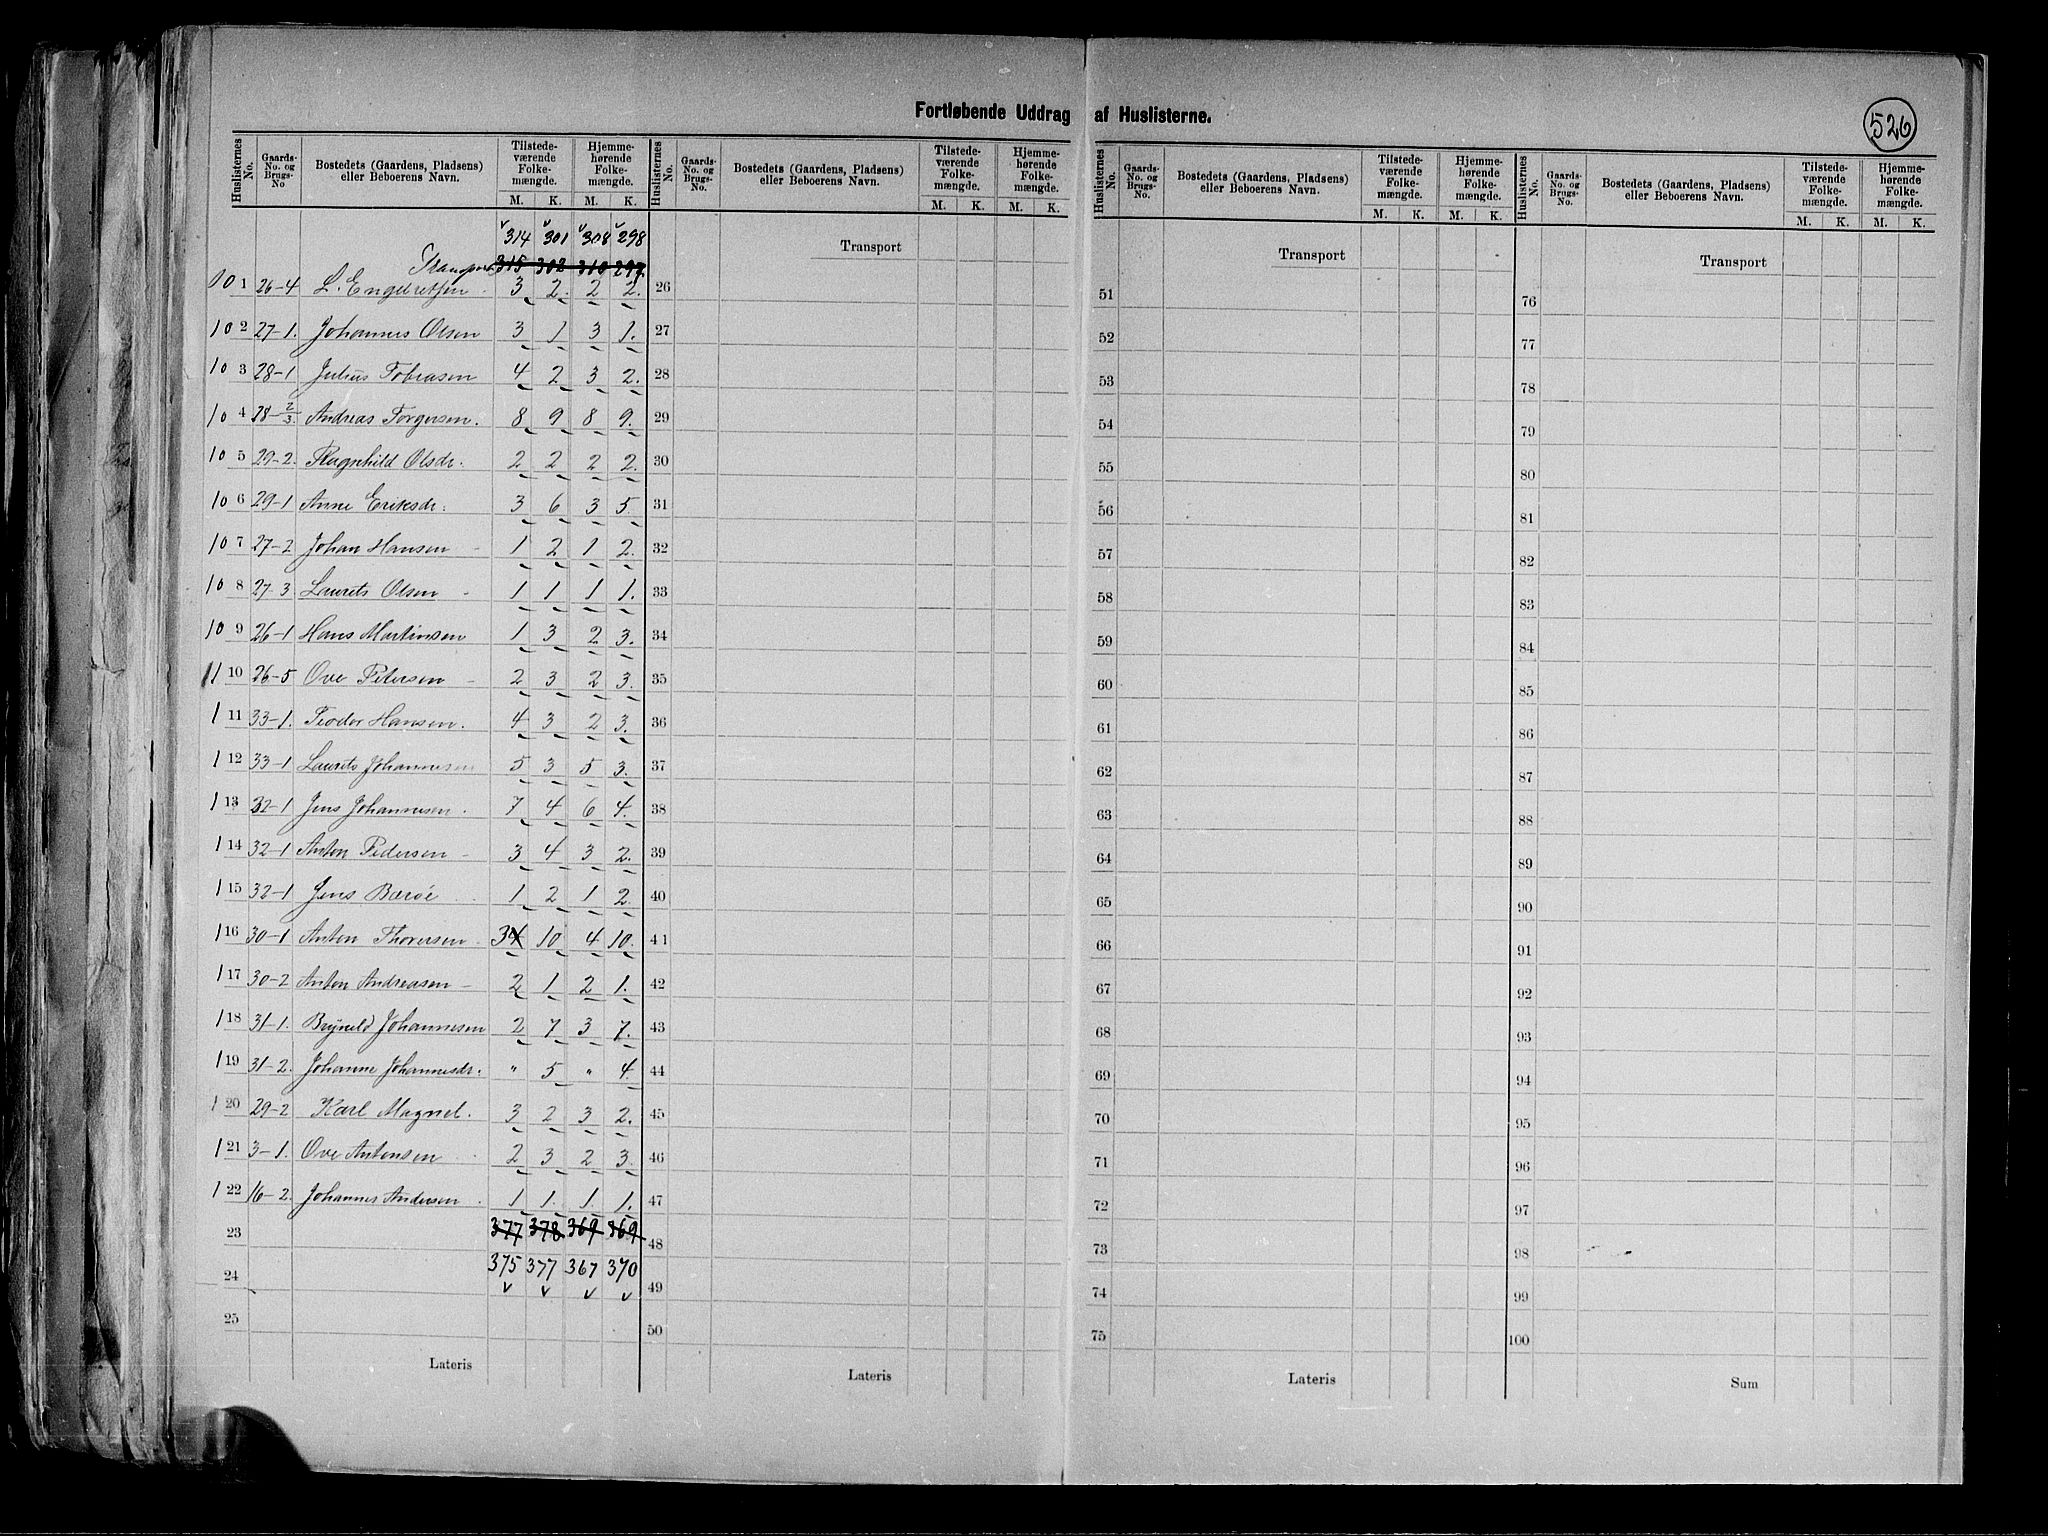 Fortløbende Uddrag af Huslisterne.
526
Huslisternes No. Gaards-No. og Brugs-No Bostedets (Gaardens, Pladsens) eller Beboerens Navn. Tilstedeværende Folkemængde. M. K. Hjemmehørende Folkemængde. M. K.
314 301 308 298
Transport 315 302 310 297.
101 26-4 L. Engebretsen 3 2. 2 2.
102 27-1. Johannes Olsen 3 1 3 1.
103 28-1 Julius Tobiasen 4 2 3 2.
104 28-2/3. Andreas Torgersen. 8 9 8 9.
105 29-2. Ragnhild Olsdr. 2 2 2 2.
106 29-1 Anne Eriksdr. 3 6 3 5.
107 27-2 Johan Hansen 1 2 1 2.
108 27-3 Laurits Olsen 1 1 1 1.
109 26-1 Hans Martinsen 1 3 2 3.
110 26-5 Ove Petersen 2 3 2 3.
111 33-1. Teodor Hansen. 4 3 2 3.
112 33-1 Laurits Johannesen 5 3 5 3.
113 32-1 Jens Johannesen. 7 4 6 4.
114 32-1 Anton Pedersen 3 4 3 2.
115 32-1 Jens Barøe 1 2 1 2
116 30-1 Anton Thoresen. 34 10 4 10.
117 30-2 Anton Andreasen 2 1 2 1.
118 31-1. Johannesen 2 7 3 7.
119 31-2. Johanne Johannesdr. " 5 " 4.
120 29-2 Karl Magnel. 3 2 3 2.
121 3-1. Ove Antonsen 2 3 2 3.
122 16-2. Johannes Andersen 1 1. 1 1.
23 377 378 369 369
24 375 377 367 370
25
Lateris
Huslisternes No. Gaards-No. og Brugs-No. Bostedets (Gaardens, Pladsens) eller Beboerens Navn. Tilstedeværende Folkemængde. M. K. Hjemmehørende Folkemængde. M. K.
Transport
26
27
28
29
30
31
32
33
34
35
36
37
38
39
40
41
42
43
44
45
46
47
48
49
50
Lateris
Huslisternes No. Gaards-No. og Brugs-No. Bostedets (Gaardens, Pladsens) eller Beboerens Navn. Tilstedeværende Folkemængde. M. K. Hjemmehørende Folkemængde. M. K.
Transport
51
52
53
54
55
56
57
58
59
60
61
62
63
64
65
66
67
68
69
70
71
72
73
74
75
Lateris
Huslisternes No. Gaards-No. og Brugs-No. Bostedets (Gaardens, Pladsens) eller Beboerens Navn. Tilstedeværende Folkemængde. M. K. Hjemmehørende Folkemængde. M. K.
Transport
76
77
78
79
80
81
82
83
84
85
86
87
88
89
90
91
92
93
94
95
96
97
98
99
100
Sum